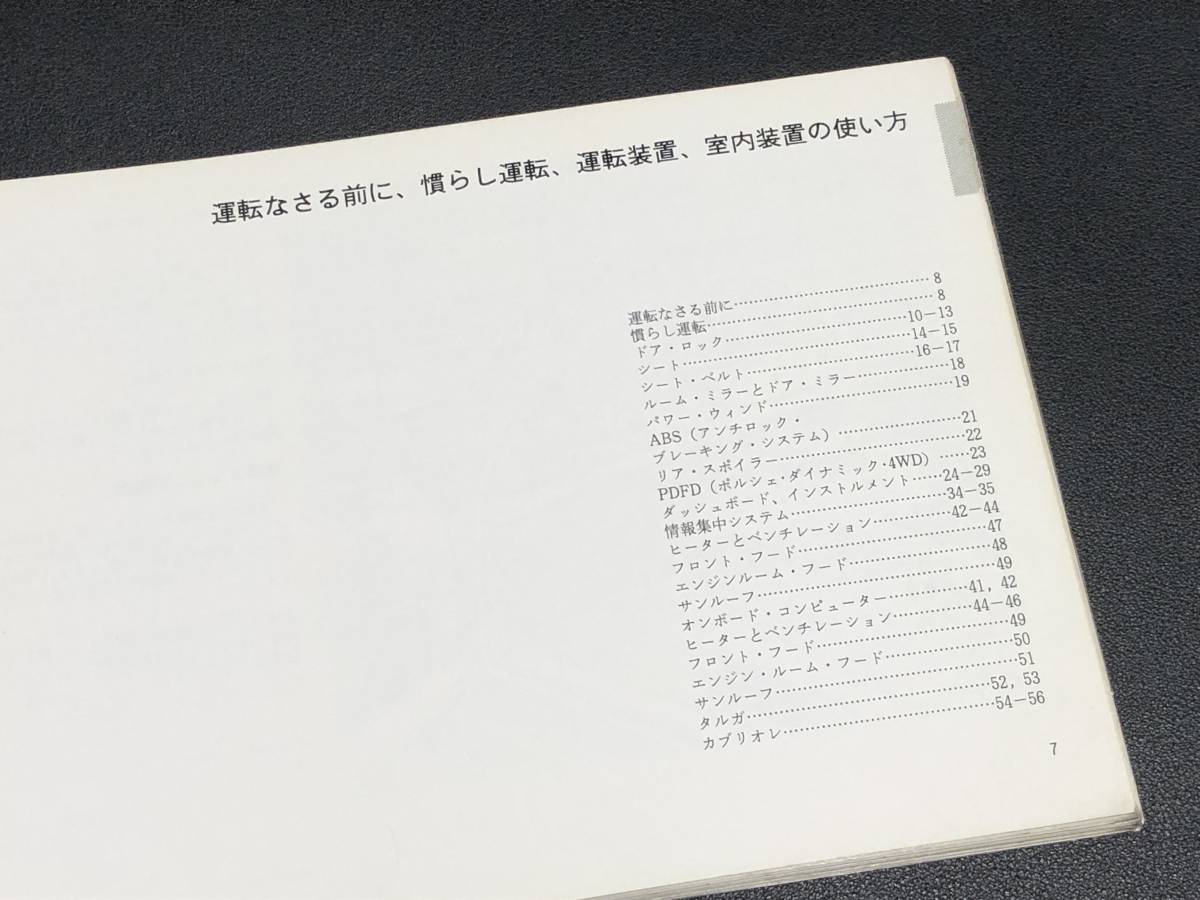 運転なさる前に、慣らし運転、運転装置、室内装置の使い方
運転なさる前に……………………………… 8
慣らし運転…………………………………… 8
ドア・ロック……………………………10－13
シート……………………………………14－15
シート・ベルト…………………………16－17
ルーム・ミラーとドア・ミラー……………18
パワー・ウィンド……………………………19
ABS（アンチロック・
ブレーキング・システム）…………………21
リア・スポイラー……………………………22
PDFD（ポルシェ・ダイナミック・4WD）……23
ダッシュボード、インストルメント……24－29
情報集中システム………………………34－35
ヒーターとベンチレーション…………42－44
フロント・フード……………………………47
エンジンルーム・フード……………………48
サンルーフ……………………………………49
オンボード・コンピューター…………41, 42
ヒーターとベンチレーション…………44－46
フロント・フード……………………………49
エンジン・ルーム・フード…………………50
サンルーフ……………………………………51
タルガ……………………………………52, 53
カブリオレ………………………………54－56
7